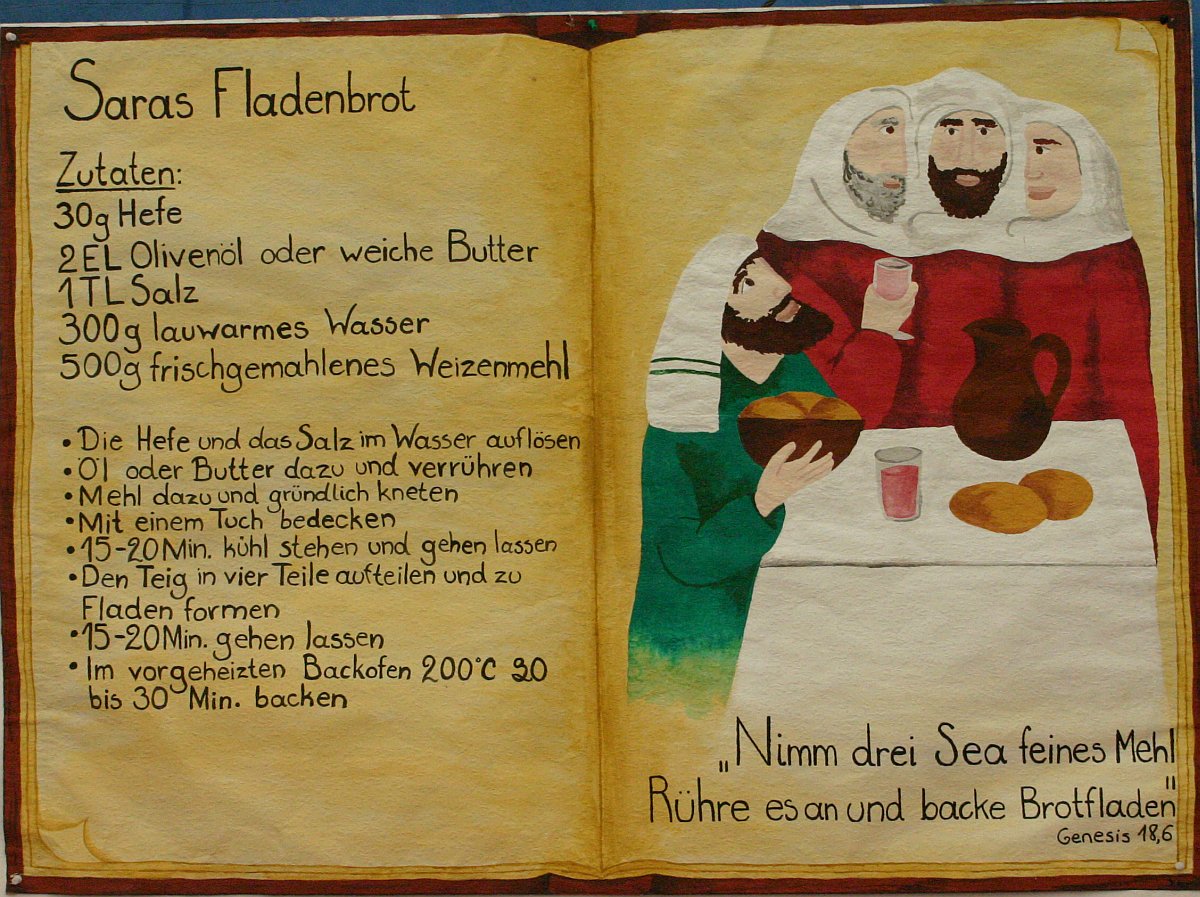 Saras Fladenbrot
Zutaten:
30g Hefe
2EL Olivenöl oder weiche Butter
1TL Salz
300g lauwarmes Wasser
500g frischgemahlenes Weizenmehl
• Die Hefe und das Salz im Wasser auflösen
• Öl oder Butter dazu und verrühren
• Mehl dazu und gründlich kneten
• Mit einem Tuch bedecken
• 15-20Min. kühl stehen und gehen lassen
• Den Teig in vier Teile aufteilen und zu
Fladen formen
• 15-20Min. gehen lassen
• Im vorgeheizten Backofen 200°C 20
bis 30 Min. backen
„Nimm drei Sea feines Mehl
Rühre es an und backe Brotfladen"
Genesis 18,6